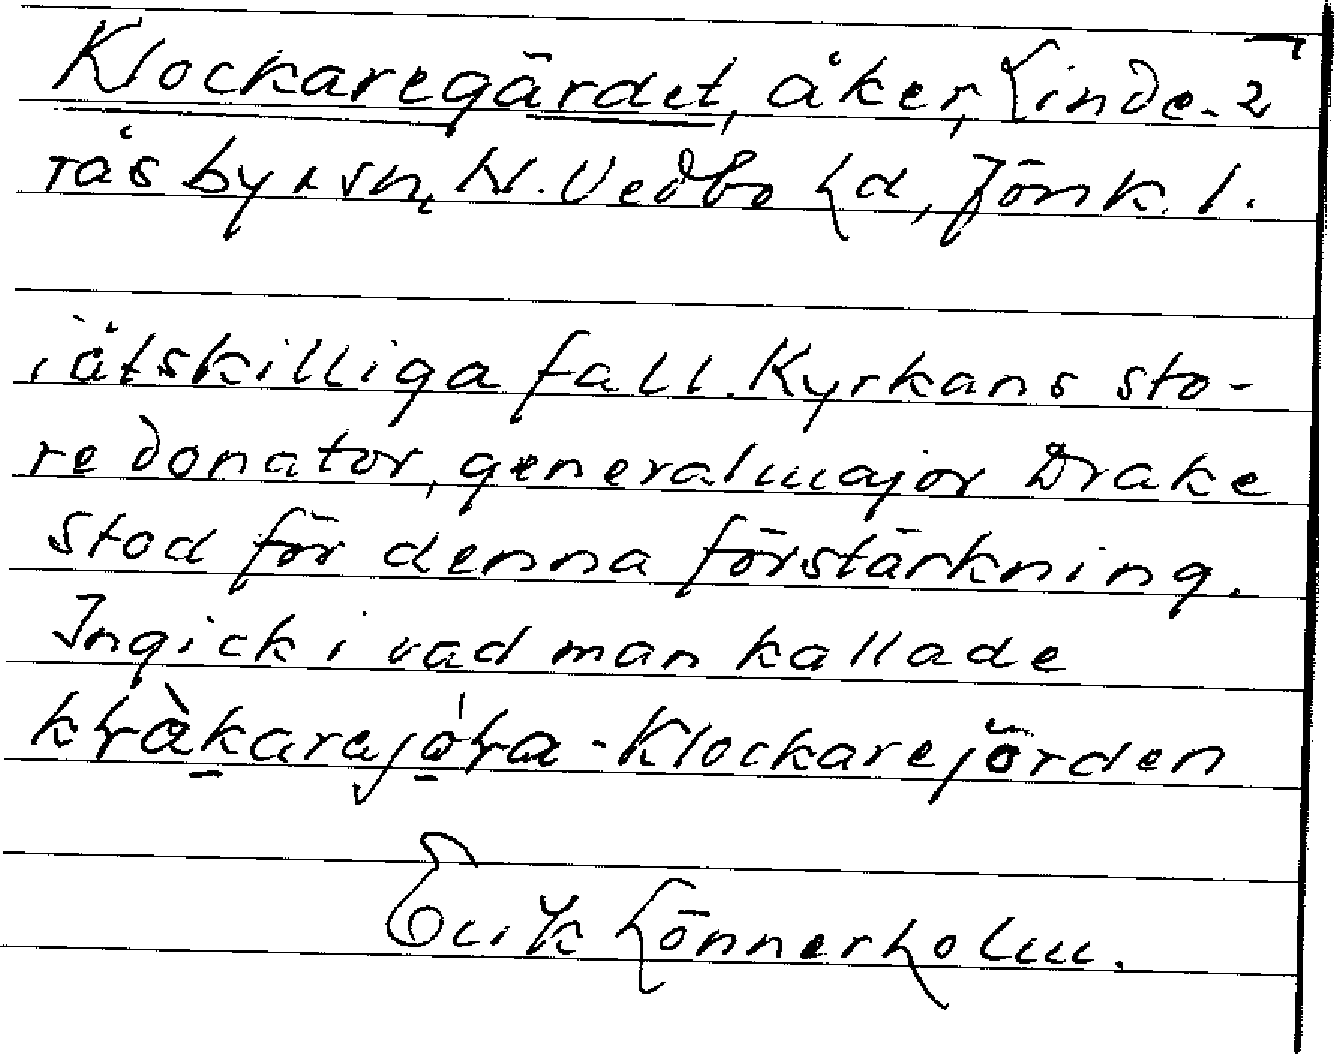 Klockaregärdet, åker, Linde- 2
rås by o sn, N. Vedbo hd, Jönk. l.
i åtskilliga fall. Kyrkans sto-
re donator, generalmajor Drake
stod för denna förstärkning.
Ingick i vad man kallade
klockarejörden
Erik Lönnerholm.